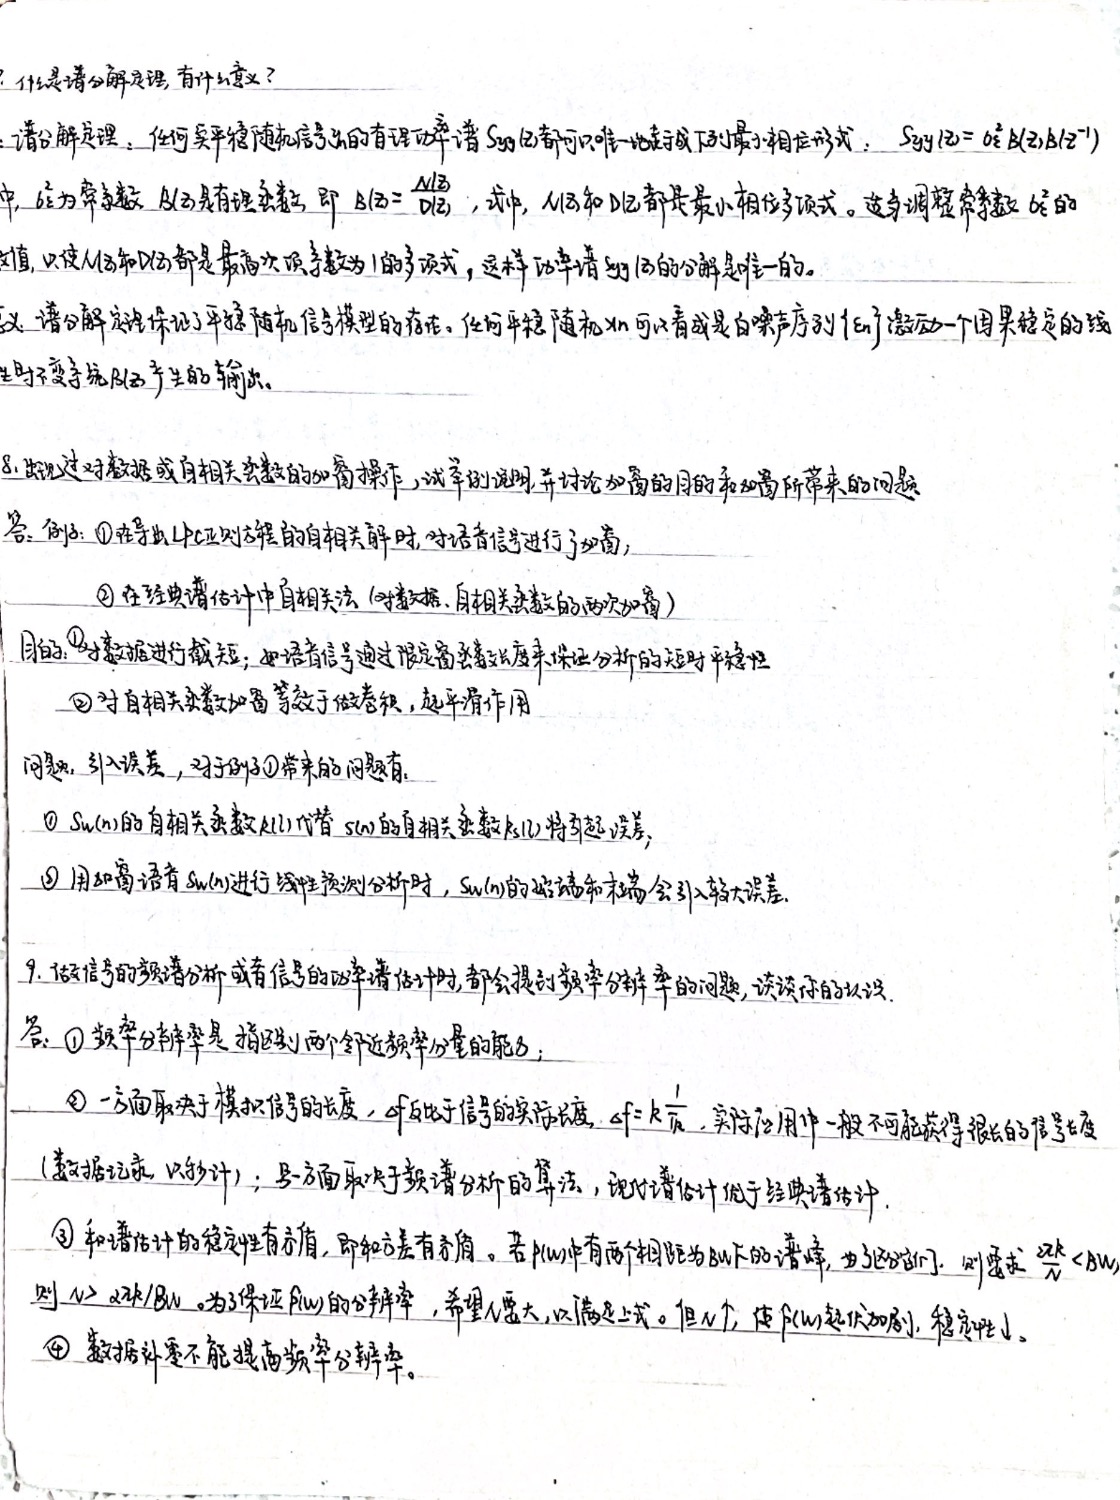 什么是谱分解定理,有什么意义?
谱分解定理:任何实平稳随机信号yn的有理功率谱Syy(z)都可以唯一地表示成下列最小相位形式: Syy(z)=σε²B(z)B(z⁻¹)
中,σε²为常系数 B(z)是有理函数,即 B(z)=N(z)/D(z),式中,N(z)和D(z)都是最小相位多项式。适当调整常系数σε²的
值,以使N(z)和D(z)都是最高次项系数为1的多项式,这样功率谱Syy(z)的分解是唯一的。
义:谱分解定理保证了平稳随机信号模型的存在。任何平稳随机xn可以看成是白噪声序列{εn}激励一个因果稳定的线
性时不变系统B(z)产生的输出。
8.出现过对数据或自相关函数的加窗操作,试举例说明,并讨论加窗的目的和加窗所带来的问题
答:例子:①在导出LPC正则方程的自相关解时,对语音信号进行了加窗;
②在经典谱估计中自相关法(对数据、自相关函数的两次加窗)
目的:①对数据进行截短;如语音信号通过限定窗函数长度来保证分析的短时平稳性
②对自相关函数加窗等效于做卷积,起平滑作用
问题:引入误差,对于例子①带来的问题有:
①Sw(n)的自相关函数R(l)代替s(n)的自相关函数Rs(l)将引起误差;
②用加窗语音Sw(n)进行线性预测分析时,Sw(n)的始端和末端会引入较大误差.
9.做信号的频谱分析或者信号的功率谱估计时,都会提到频率分辨率的问题,谈谈你的认识.
答:①频率分辨率是指区别两个邻近频率分量的能力;
②一方面取决于模拟信号的长度,Δf反比于信号的实际长度,Δf=k 1/Tc,实际应用中一般不可能获得很长的信号长度
(数据记录,以秒计);另一方面取决于频谱分析的算法,现代谱估计优于经典谱估计.
③和谱估计的稳定性有矛盾,即和方差有矛盾。若P(w)中有两个相距为BW的谱峰,为了区分它们,则要求 2πk/N<BW,
则 N>2πk/BW。为了保证P(w)的分辨率,希望N要大,以满足上式。但N↑,使P(w)起伏加剧,稳定性↓。
④数据补零不能提高频率分辨率。